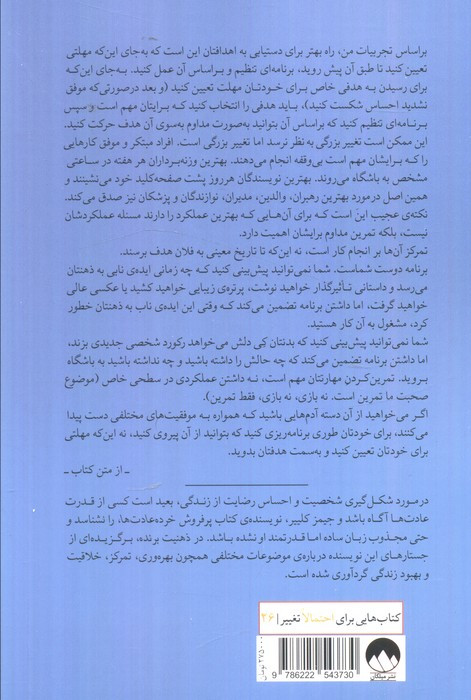 براساس تجربیات من، راه بهتر برای دستیابی به اهدافتان این است که به‌جای این‌که مهلتی
تعیین کنید تا طبق آن پیش روید، برنامه‌ای تنظیم و براساس آن عمل کنید. به‌جای این‌که
برای رسیدن به هدفی خاص برای خودتان مهلت تعیین کنید (و بعد درصورتی‌که موفق
نشدید احساس شکست کنید)، باید هدفی را انتخاب کنید که برایتان مهم است و سپس
برنامه‌ای تنظیم کنید که براساس آن بتوانید به‌صورت مداوم به‌سوی آن هدف حرکت کنید.
این ممکن است تغییر بزرگی به نظر نرسد اما تغییر بزرگی است. افراد مبتکر و موفق کارهایی
را که برایشان مهم است بی‌وقفه انجام می‌دهند. بهترین وزنه‌برداران هر هفته در ساعتی
مشخص به باشگاه می‌روند. بهترین نویسندگان هرروز پشت صفحه‌کلید خود می‌نشینند و
همین اصل درمورد بهترین رهبران، والدین، مدیران، نوازندگان و پزشکان نیز صدق می‌کند.
نکته‌ی عجیب این است که برای آن‌هایی که بهترین عملکرد را دارند مسئله عملکردشان
نیست، بلکه تمرین مداوم برایشان اهمیت دارد.
تمرکز آن‌ها بر انجام کار است، نه این‌که تا تاریخ معینی به فلان هدف برسند.
برنامه دوست شماست. شما نمی‌توانید پیش‌بینی کنید که چه زمانی ایده‌ی نابی به ذهنتان
می‌رسد و داستانی تأثیرگذار خواهید نوشت، پرتره‌ی زیبایی خواهید کشید یا عکسی عالی
خواهید گرفت، اما داشتن برنامه تضمین می‌کند که وقتی این ایده‌ی ناب به ذهنتان خطور
کرد، مشغول به آن کار هستید.
شما نمی‌توانید پیش‌بینی کنید که بدنتان کی دلش می‌خواهد رکورد شخصی جدیدی بزند،
اما داشتن برنامه تضمین می‌کند که چه حالش را داشته باشید و چه نداشته باشید به باشگاه
بروید. تمرین‌کردن مهارتتان مهم است، نه داشتن عملکردی در سطحی خاص (موضوع
صحبت ما تمرین است. نه بازی، نه بازی، فقط تمرین).
اگر می‌خواهید از آن دسته آدم‌هایی باشید که همواره به موفقیت‌های مختلفی دست پیدا
می‌کنند، برای خودتان طوری برنامه‌ریزی کنید که بتوانید از آن پیروی کنید، نه این‌که مهلتی
برای خودتان تعیین کنید و به‌سمت هدفتان بدوید.
ـ از متن کتاب ـ
درمورد شکل‌گیری شخصیت و احساس رضایت از زندگی، بعید است کسی از قدرت
عادت‌ها آگاه باشد و جیمز کلییر، نویسنده‌ی کتاب پرفروش خرده‌عادت‌ها، را نشناسد و
حتی مجذوب زبان ساده اما قدرتمند او نشده باشد. در ذهنیت برنده، برگزیده‌ای از
جستارهای این نویسنده درباره‌ی موضوعات مختلفی همچون بهره‌وری، تمرکز، خلاقیت
و بهبود زندگی گردآوری شده است.
کتاب‌هایی برای احتمالا تغییر | ۲۶
۲۷۵۰۰۰ تومان
نشر میلکان
9 786222 543730